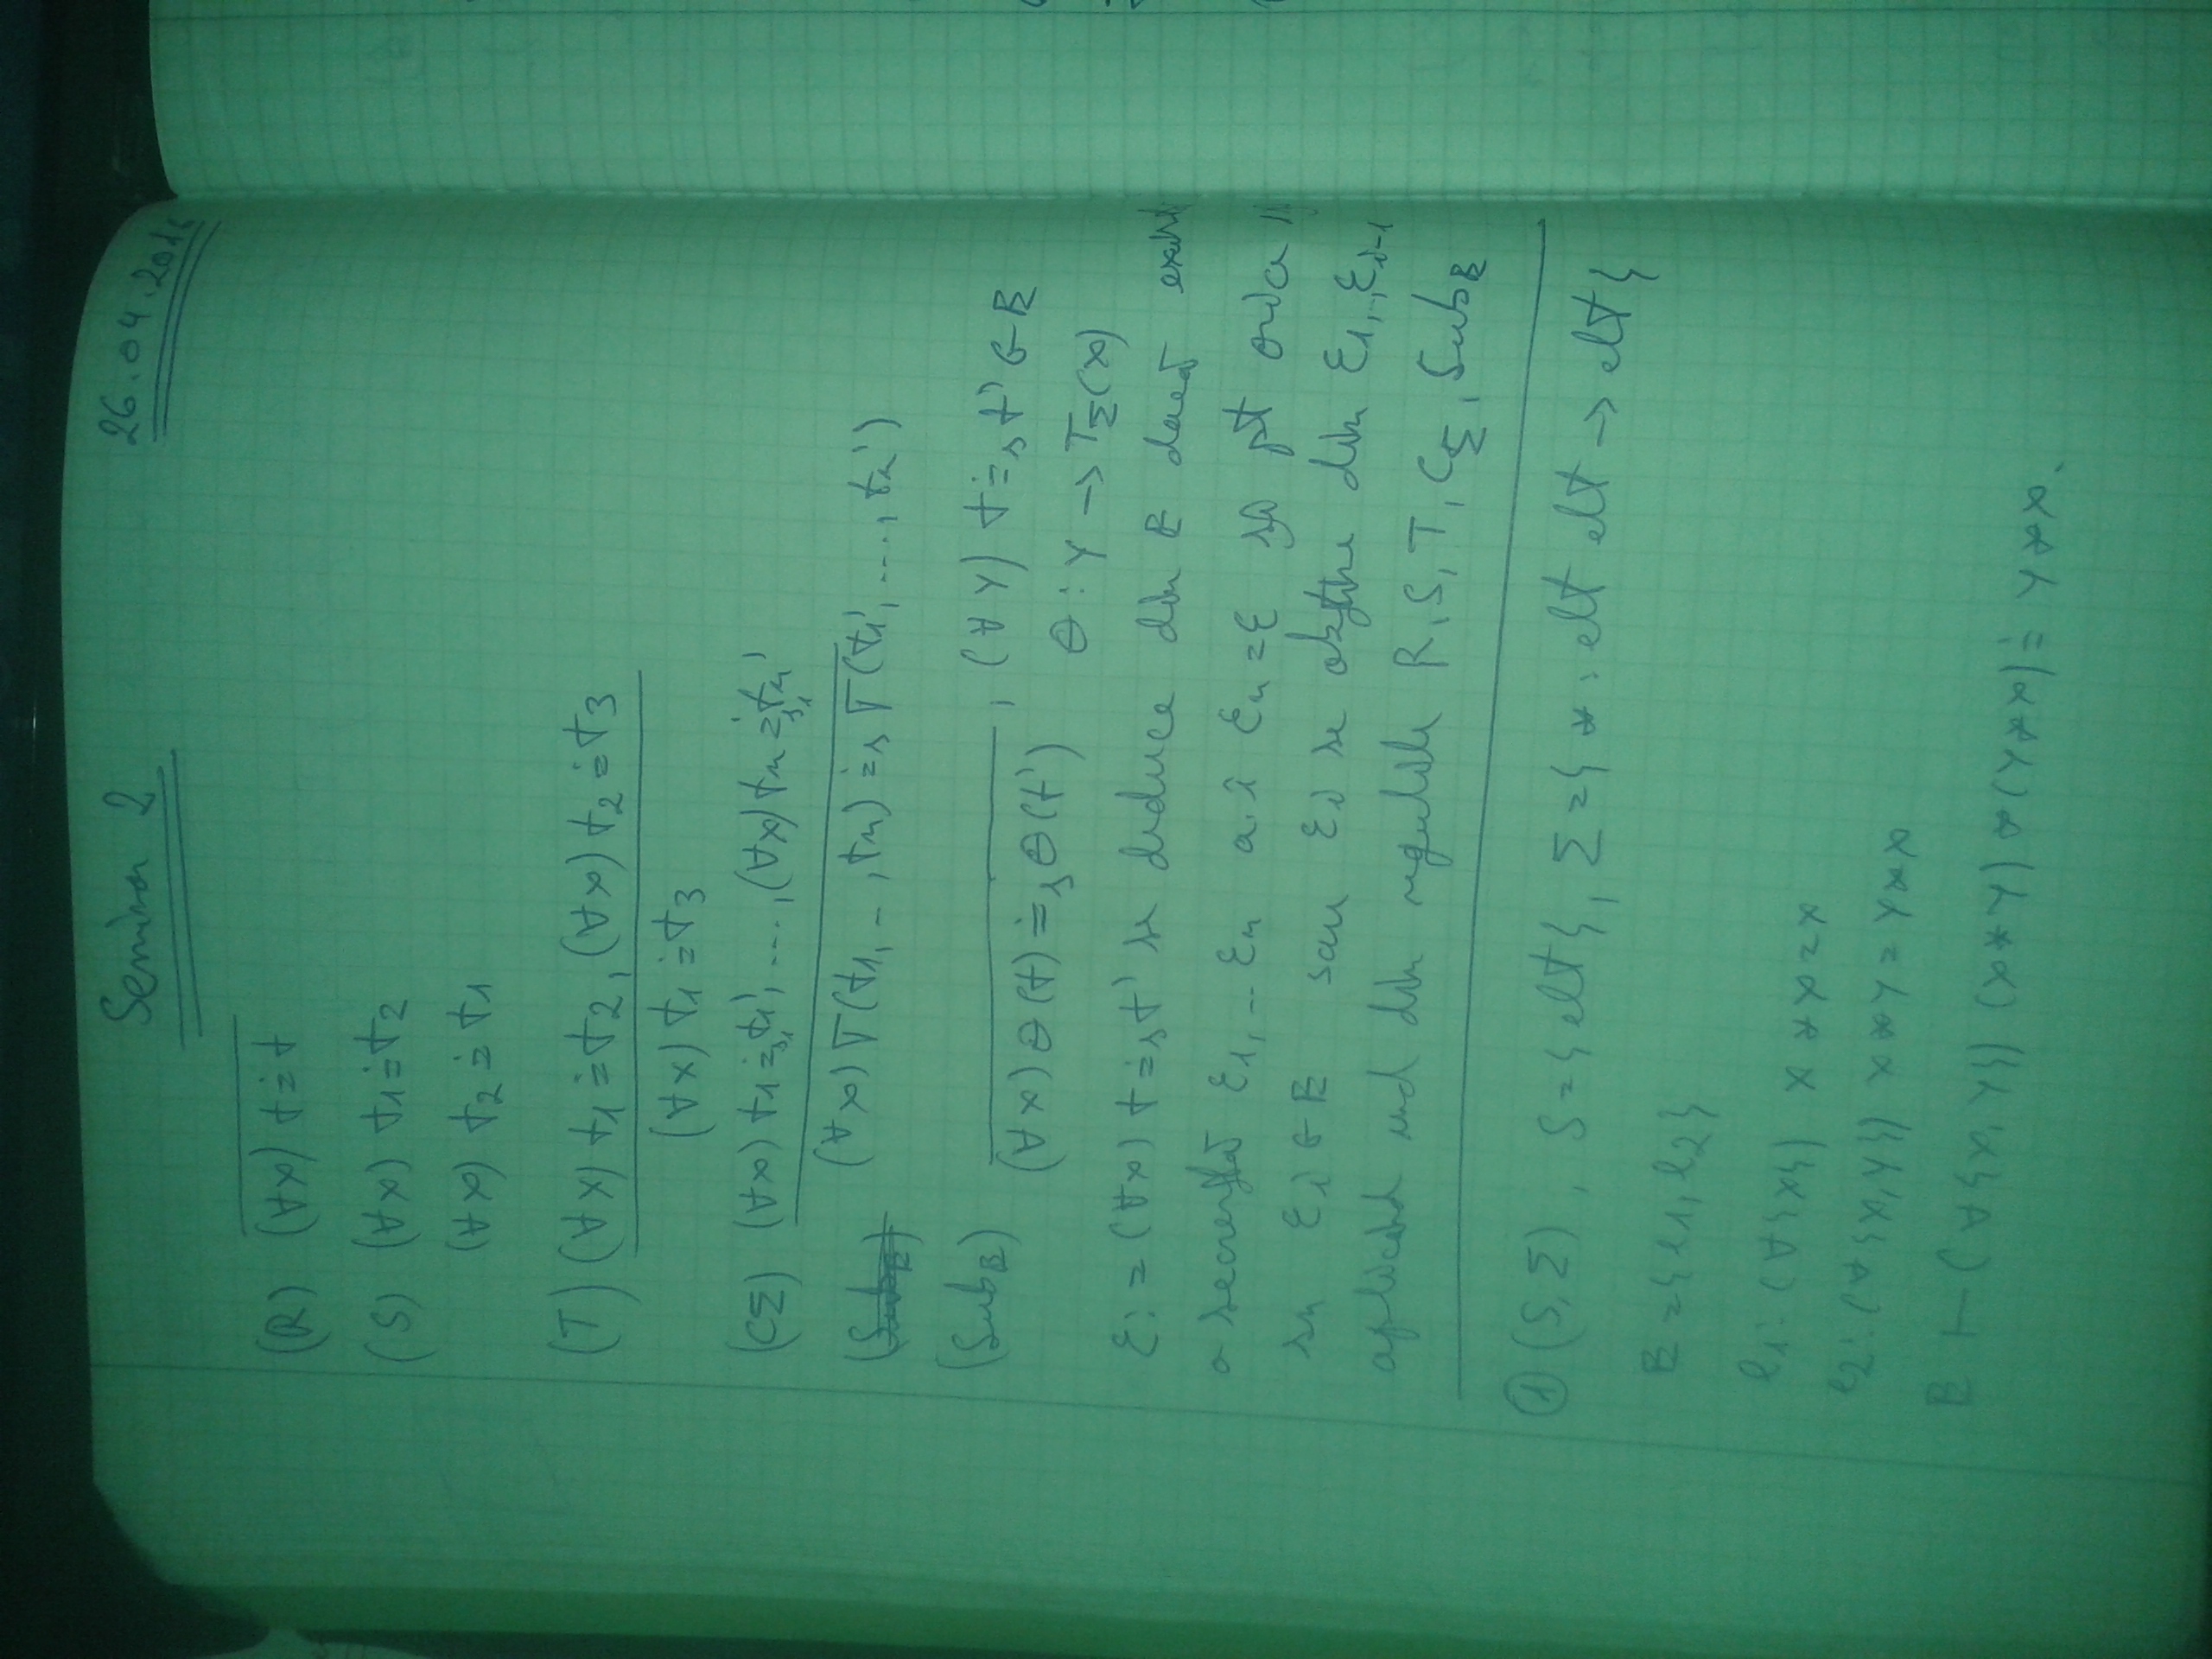 Seminar 2 26.04.201
(R) (∀x) t ≐ t
(S) (∀x) t1 ≐ t2
(∀x) t2 ≐ t1
(T) (∀x) t1 ≐ t2, (∀x) t2 ≐ t3
(∀x) t1 ≐ t3
(CΣ) (∀x) t1 ≐s1 t1', ..., (∀x) tn ≐s1 tn'
(∀x) Γ(t1, .., tn) ≐s Γ(t1', ...., tn')
(SubE)
(SubE) , (∀Y) t ≐s t' ∈ E
(∀x) θ(t) ≐s θ(t') θ : Y → TΣ(x)
ε: = (∀x) t ≐s t' se deduce din E dacă exist
o secvență ε1, .. εn a.î εn = ε și pt orice
sn εi ∈ E sau εi se obține din ε1, .., εi-1
aplicând und din regulile R, S, T, CΣ, SubE
① (S, Σ), S = {elt}, Σ = { * : elt elt → elt}
E = {e1, e2}
e1: (∀{x}) x * x = x
e2: (∀{x, y}) x * y = y * x
E ⊢ (∀{x, y}) (x * y) * (y * x) ≐ y * x.